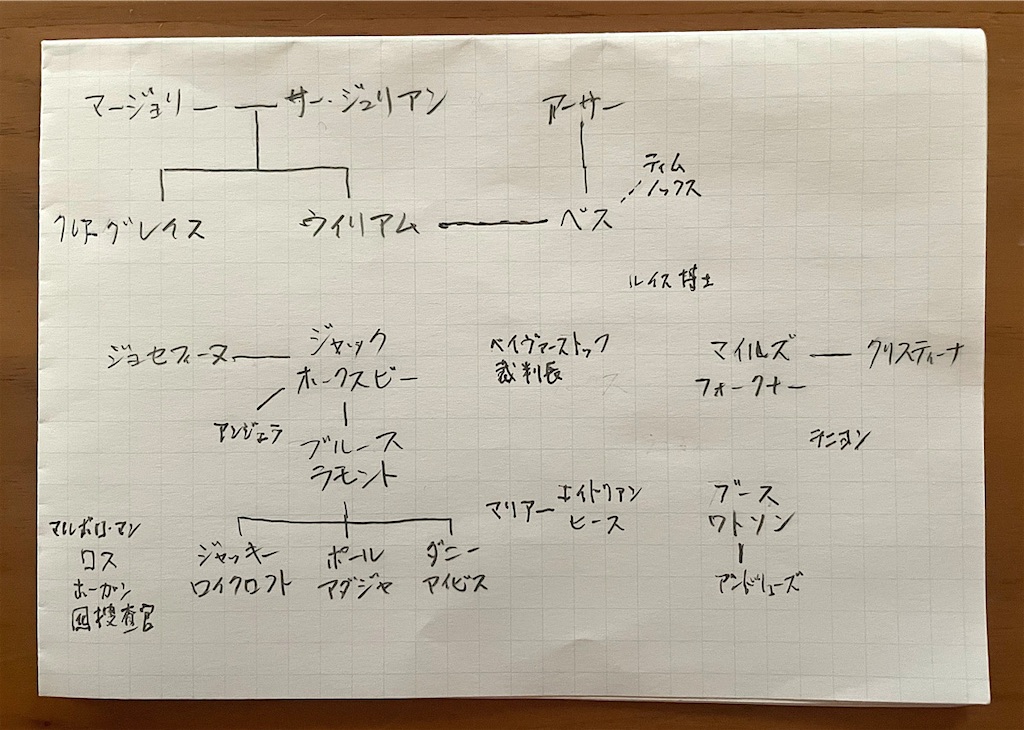 マージョリー
サー・ジュリアン
アーサー
ティム
ノックス
グレイス
ウイリアム
ベス
ルイス博士
ジョセフィーヌ
ジャック
ホークスビー
アンジェラ
ベイヴァーストック
裁判長
マイルズ
フォークナー
クリスティーナ
テニヨン
ブルース
ラモント
マリアー
エイドリアン
ヒース
ブース
ワトソン
アンドリューズ
マルボロ・マン
ロス
ホーガン
囮捜査官
ジャッキー
ロイクロフト
ポール
アダジャ
ダニー
アイビス